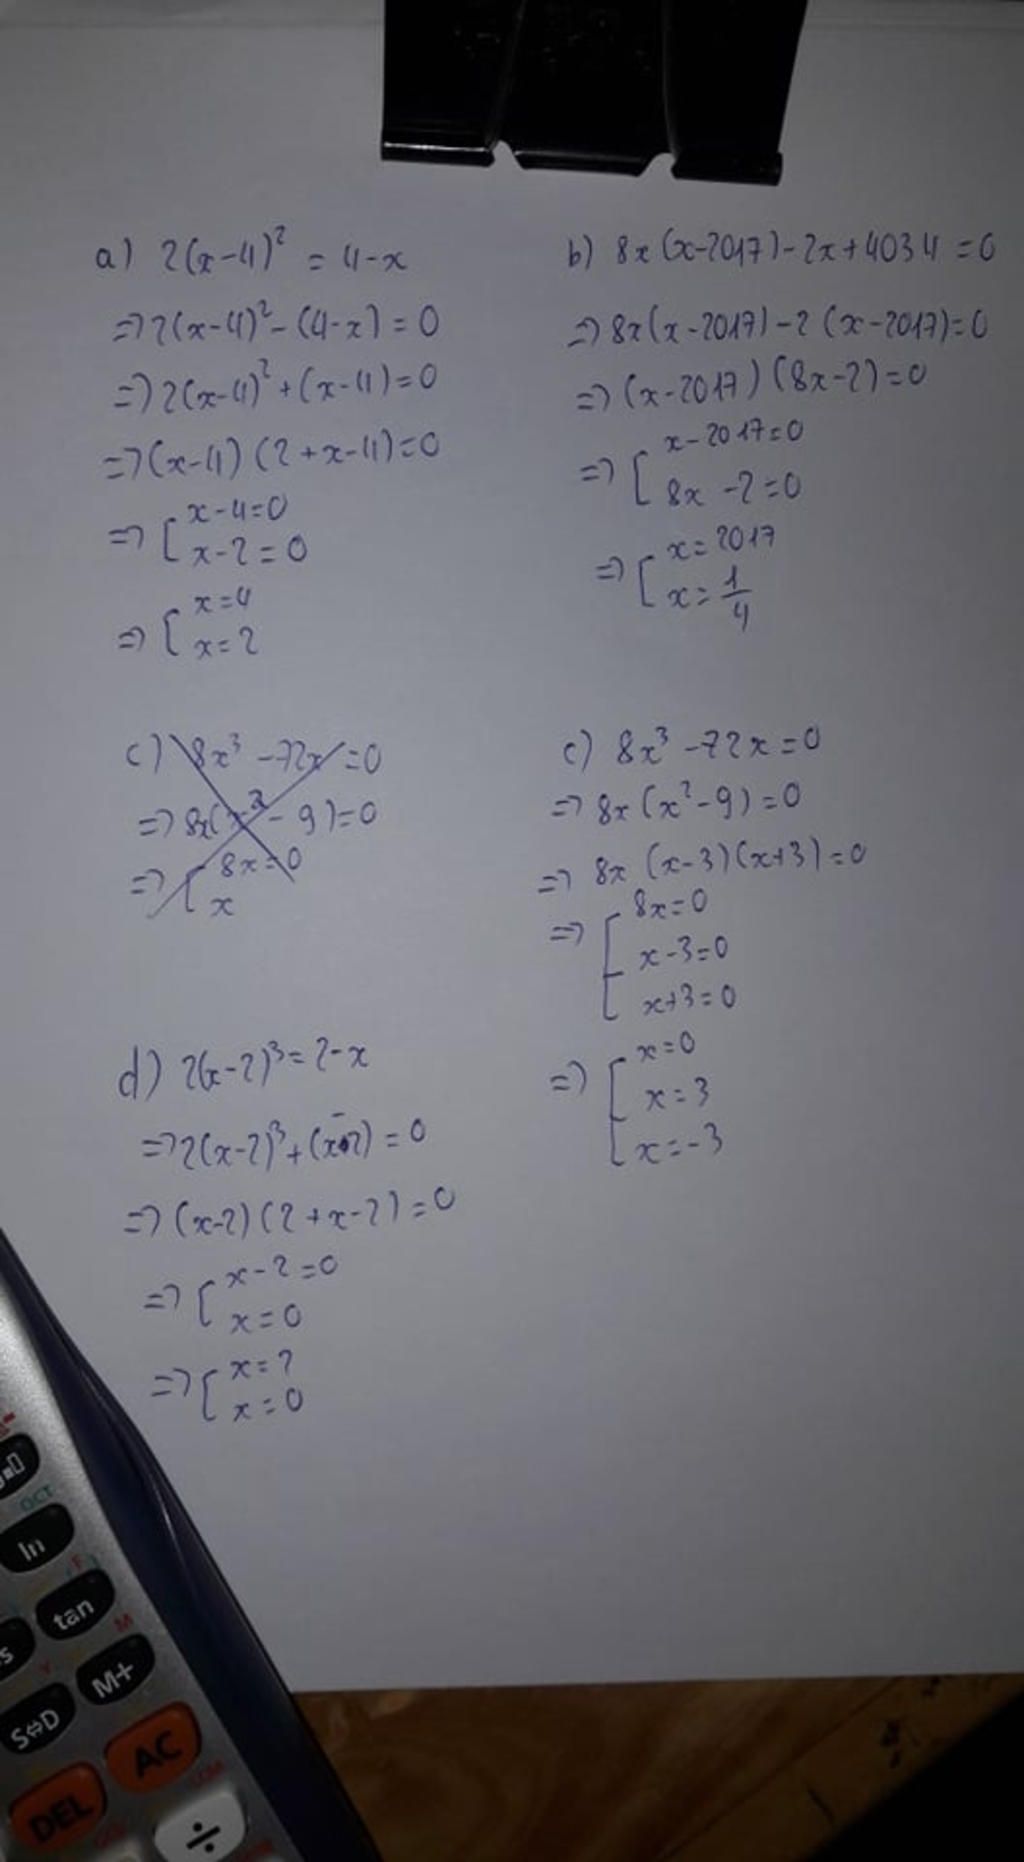 a) 2(x-4)² = 4-x
=> 2(x-4)² - (4-x) = 0
=> 2(x-4)² + (x-4) = 0
=> (x-4) (2+x-4) = 0
=> [ x-4=0
x-2=0
=> [ x=4
x=2
b) 8x(x-2017)-2x+4034=0
=> 8x(x-2017)-2(x-2017)=0
=> (x-2017)(8x-2)=0
=> [ x-2017=0
8x-2=0
=> [ x=2017
x=1/4
c) 8x³-72x=0
=> 8x(x²-9)=0
=> [ 8x=0
x
c) 8x³-72x=0
=> 8x(x²-9)=0
=> 8x(x-3)(x+3)=0
=> [ 8x=0
x-3=0
x+3=0
=> [ x=0
x=3
x=-3
d) 2(x-2)³=2-x
=> 2(x-2)³+(x-2)=0
=> (x-2)(2+x-2)=0
=> [ x-2=0
x=0
=> [ x=2
x=0
OCT
ln
F
tan
M
s
Y
M+
S⇔D
AC
DEL
÷